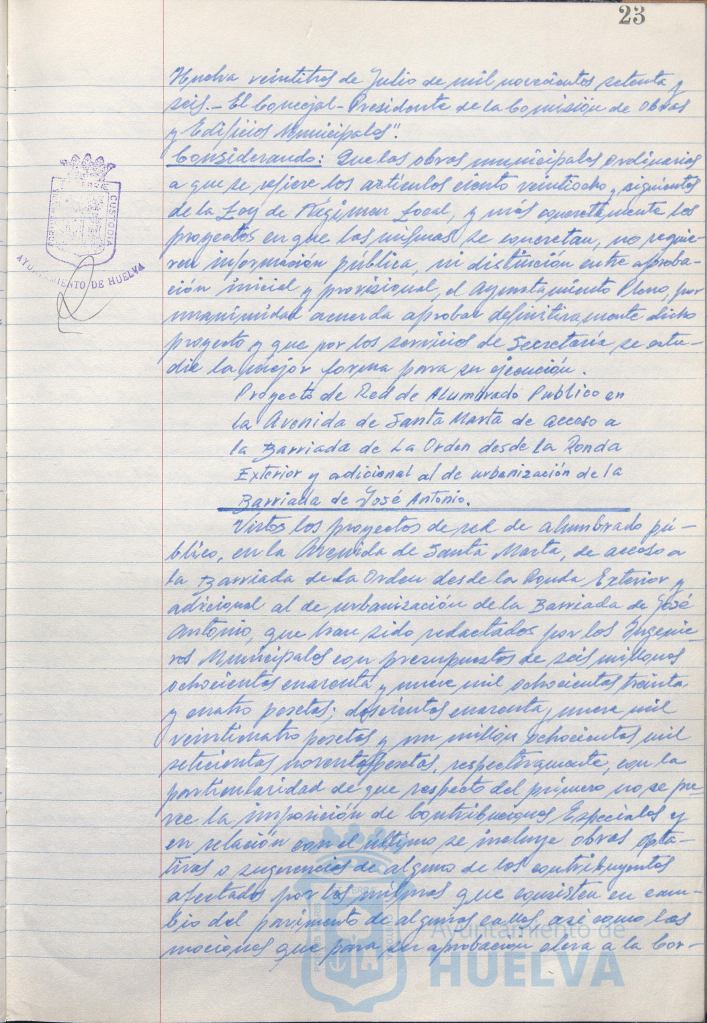 23
Huelva veintitres de Julio de mil novecientos setenta y
seis.- El Concejal-Presidente de la Comisión de Obras
y Edificios Municipales".
Considerando: Que las obras municipales ordinarias
a que se refiere los articulos ciento veintiocho y siguientes
de la Ley de Régimen Local, y más concretamente los
proyectos en que las mismas se concretan, no requie-
ren información pública, ni distinción entre aproba-
ción inicial y provisional, el Ayuntamiento Pleno, por
unanimidad acuerda aprobar definitivamente dicho
proyecto y que por los servicios de Secretaría se estu-
die la mejor forma para su ejecución.
Proyecto de Red de Alumbrado Publico en
la Avenida de Santa Marta de acceso a
la Barriada de La Orden desde la Ronda
Exterior y adicional al de urbanización de la
Barriada de José Antonio.
Vistos los proyectos de red de alumbrado pú-
blico, en la Avenida de Santa Marta, de acceso a
la Barriada de La Orden desde la Ronda Exterior y
adicional al de urbanización de la Barriada de José
Antonio, que han sido redactados por los Ingenie-
ros Municipales con presupuestos de seis millones
ochocientas cuarenta y nueve mil ochocientas treinta
y cuatro pesetas; doscientas cuarenta y nueve mil
veinticuatro pesetas y un millon ochocientas mil
setecientas noventa pesetas, respectivamente, con la
particularidad de que respecto del primero no se pre-
vee la imposición de Contribuciones Especiales y
en relación con el último se incluye obras opta-
tivas o sugerencias de alguno de los contribuyentes
afectados por las mismas que consisten en cam-
bio del pavimento de algunas calles, así como las
mociones que para su aprobacion eleva a la Cor-
AYUNTAMIENTO DE HUELVA
CUSTODIA
Ayuntamiento de
HUELVA